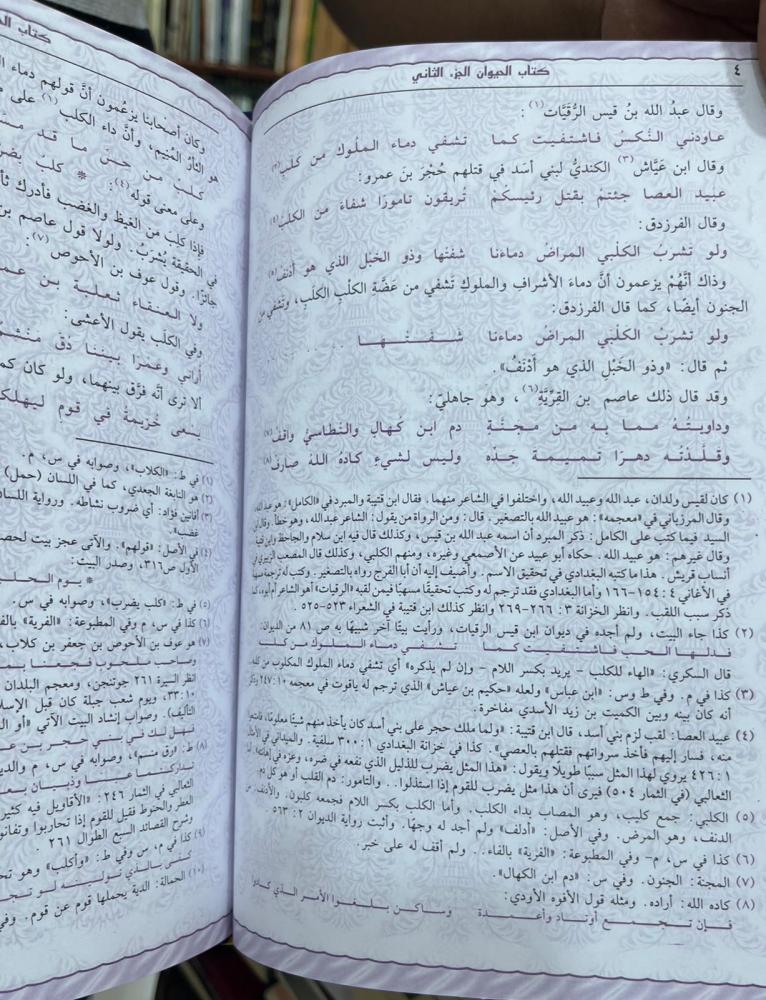 ٤
كتاب الحيوان الجزء الثاني
وقال عبدُ الله بنُ قيس الرُّقَيَّات(١):
عاودني النُّكسُ فاشتفيت كما تشفي دماء الملُوك من كَلَبِ(٢)
وقال ابن عَيَّاش(٣) الكنديُّ لبني أسَد في قتلهم حُجْرَ بنَ عمرو:
عبيد العصا جئتمْ بقتل رئيسكُمْ تُريقون تامورًا شفاءً من الكلَبِ(٤)
وقال الفرزدق:
ولو تشربُ الكلْبي المراضُ دماءَنا شفتْها وذو الخَبْل الذي هو أدنَفُ(٥)
وذاك أنَّهُمْ يزعمون أنَّ دماءَ الأشرافِ والملوكِ تَشفي من عَضَّةِ الكلْبِ الكَلِبِ، وتَشْفي من
الجنون أيضًا، كما قال الفرزدق:
ولو تشربُ الكلْبي المراضُ دماءَنا شـفـتْـهـا
ثم قال: «وذو الخَبْلِ الذي هو أَدْنَفُ».
وقد قال ذلك عاصم بن القِرِّيَّةِ(٦)، وهو جاهليّ:
وداويـتُـهُ مـمـا بـه مـن مـجـنَّـةٍ دم ابن كُهالٍ والنَّطاسيُّ واقفُ(٧)
وقـلَّـدْتُـه دهـرًا تـمـيـمـة جـدِّه وليس لشيءٍ كادهُ اللهُ صارفُ(٨)
(١) كان لقيس ولدان، عبد الله وعبيد الله، واختلفوا في الشاعر منهما. فقال ابن قتيبة والمبرد في «الكامل»: هو عبد الله،
وقال المرزباني في «معجمه»: هو عبيد الله بالتصغير. قال: ومن الرواة من يقول: الشاعر عبد الله، وهو خطأ. وقال ابن
السيد فيما كتب على الكامل: ذكر المبرد أن اسمه عبد الله بن قيس، وكذلك قال فيه ابن سلام والجاحظ وابن قتيبة
وقال غيرهم: هو عبيد الله. حكاه أبو عبيد عن الأصمعي وغيره، ومنهم الكلبي، وكذلك قال المصعب الزبيري في
أنساب قريش. هذا ما كتبه البغدادي في تحقيق الاسم. وأضيف إليه أن أبا الفرج رواه بالتصغير. وكتب له ترجمة مسهبة
في الأغاني ٤: ١٥٤-١٦٦ وأما البغدادي فقد ترجم له وكتب تحقيقًا مسهبًا فيمن لقبه «الرقيات» أهو الشاعر أم أبوه، كما
ذكر سبب اللقب. وانظر الخزانة ٣: ٢٦٦-٢٦٩ وانظر كذلك ابن قتيبة في الشعراء ٥٢٣-٥٢٥.
(٢) كذا جاء البيت، ولم أجده في ديوان ابن قيس الرقيات، ورأيت بيتًا آخر شبيهًا به ص ٨١ من الديوان:
الحب فـاشـتـفـيـت كـمـا تـشـفـي دمـاء الـمـلـوك مـن كـلـبـه
قال السكري: «الهاء للكلب - يريد بكسر اللام - وإن لم يذكره» أي تشفي دماء الملوك المكلوب من كلبه.
(٣) كذا في م. وفي ط وس: «ابن عباس» ولعله «حكيم بن عياش» الذي ترجم له ياقوت في معجمه ١٠: ٢٤٧
أنه كان بينه وبين الكميت بن زيد الأسدي مفاخرة.
(٤) عبيد العصا: لقب لزم بني أسد، قال ابن قتيبة: «ولما ملك حجر على بني أسد كان يأخذ منهم شيئًا معلومًا،
منه، فسار إليهم فأخذ سرواتهم فقتلهم بالعصي». كذا في خزانة البغدادي ١: ٣٠٠ سلفية. والميداني في
١: ٤٢٦ يروي لهذا المثل سببًا طويلًا ويقول: «هذا المثل يضرب للذليل الذي نفعه في ضره، وعزه في
الثعالبي (في الثمار ٥٠٤) فيرى أن هذا مثل يضرب للقوم إذا استذلوا.. والتامور: دم القلب أو هو كل دم.
(٥) الكلبي: جمع كليب، وهو المصاب بداء الكلب. وأما الكلب بكسر اللام فجمعه كلبون. والأدنف، من
الدنف، وهو المرض. وفي الأصل: «أدلف» ولم أجد له وجهًا. وأثبت رواية الديوان ٢: ٥٦٣.
(٦) كذا في س، م- وفي المطبوعة: «الفرية» بالفاء.. ولم أقف له على خبر.
(٧) المجنة: الجنون. وفي س: «دم ابن الكهال».
(٨) كاده الله: أراده. ومثله قول الأفوه الأودي:
فـإن تـجـمـع أوتـاد وأعـمـدة وسـاكـن بـلـغـوا الأمر الـذي كـادوا
كتاب
وكان أصحابنا يزعُمون أنَّ قولهم دماء
هو الثأرُ المُنِيم، وأنَّ داءَ الكلبِ(١) على
كـلـبٌ مـن حـسّ مـا قـد
وعلى معنى قوله(٤): * كلبٌ
فإذا كلب من الغيظ والغضب فأدرك
في الحقيقة يُشرَبُ. ولولا قول عاصم بن
جائزًا. وقول عوف بن الأحوص(٧):
ولا الـعـنـقـاء ثـعـلـبـة بـن
وفي الكَلَبِ يقول الأعشى:
أراني وعَـمْـرًا بـيـنـنـا دَقّ
ألا ترى أنَّه فرَّق بينهما، ولو كان
يسعى خُزيمةُ في قومٍ
(١) في ط: «الكلاب»، وصوابه في س، م.
(٢) هو النابغة الجعدي، كما في اللسان (حمل)
(٣) أفانين فؤاد: أي ضروب نشاطه. ورواية
غضب».
(٤) في الأصل: «قولهم». والآتي عجز بيت
الأول ص٣١٦، وصدر البيت:
* يـوم
(٥) في ط: «كلب يضرب»، وصوابه في س.
(٦) كذا في س، م وفي المطبوعة: «الفرية»
(٧) هو عوف بن الأحوص بن جعفر بن كلاب،
انظر السيرة ٢٦١ جوتنجن، ومعجم البلدان
١٠: ٣٣، ويوم شعب جبلة كان قبل
التأليف). وصواب إنشاد البيت الآتي
(٨) ط: «رق منسم»، وصوابه في س، م
الثعالبي في الثمار ٢٤٦: «الأقاويل فيه
العطر والحنوط فقيل للقوم إذا تحاربوا
وشرح القصائد السبع الطوال ٢٦١.
(٩) كذا في م، س وفي ط: «وأكلب» وهو
(١٠) الحمالة: الدية يحملها قوم عن قوم.